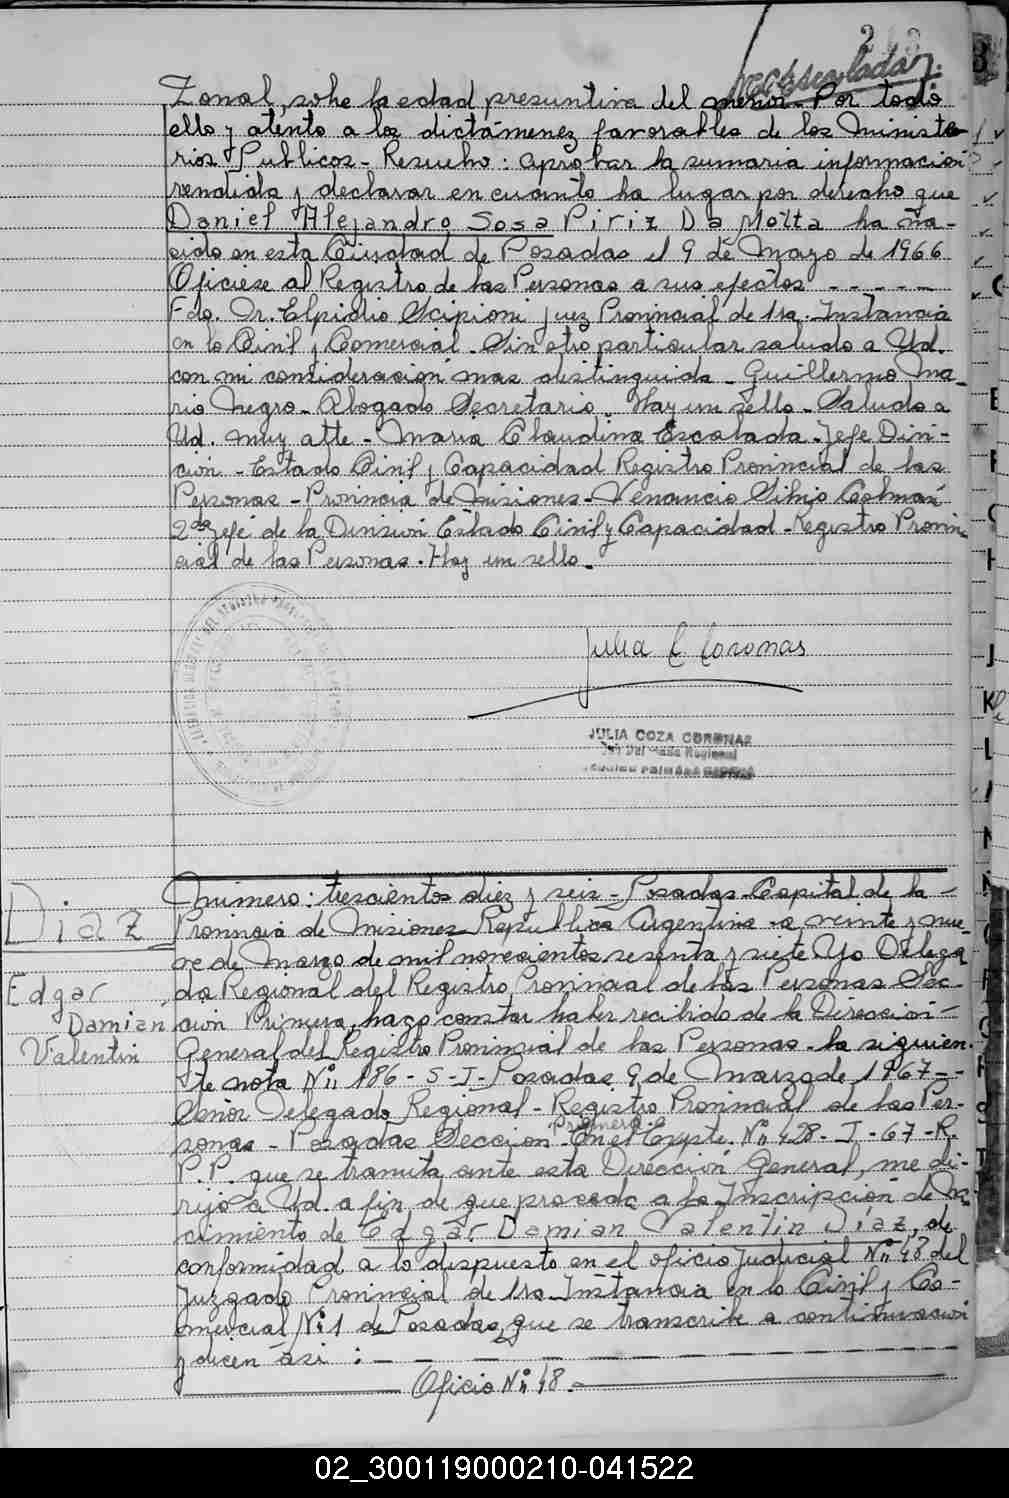 Zonal, sobre la edad presuntiva del menor - Por todo
ello y atento a los dictámenes favorables de los Ministe-
rios Publicos - Resuelvo: aprobar la sumaria información
rendida y declarar en cuanto ha lugar por derecho que
Daniel Alejandro Sosa Piriz Da Motta ha na-
cido en esta Ciudad de Posadas el 9 de Mayo de 1966
Oficiese al Registro de las Personas a sus efectos - - - - -
Fdo. Dr. Elpidio Scipioni Juez Provincial de 1ra. Instancia
en lo Civil y Comercial. Sin otro particular saludo a Ud.
con mi consideración mas distinguida - Guillermo Ma-
rio Negro - Abogado Secretario. Hay un sello - Saludo a
Ud. muy atte - Maria Claudina Escalada - Jefe Divi-
cion - Estado Civil y Capacidad Registro Provincial de las
Personas - Provincia de Misiones - Venancio Colmán
2do Jefe de la Division Estado Civil y Capacidad - Registro Provin-
cial de las Personas. Hay un sello -
Julia C Coronas
JULIA COZA CORONAS
Regional
Numero: trescientos diez y seis - Posadas Capital de la
Diaz
Provincia de Misiones Republica Argentina a veinte y nue-
ve de Marzo de mil novecientos sesenta y siete Yo Delega
Edgar
do Regional del Registro Provincial de las Personas Sec-
Damian
cion Primera, hago constar haber recibido de la Direccion
Valentin
General del Registro Provincial de las Personas - la siguien-
te nota Nº 186 - S - I - Posadas 9 de Marzo de 1967 - -
Señor Delegado Regional - Registro Provincial de las Per-
sonas - Posadas Seccion Primera - En el Expte. Nº 428 - I - 67 - R.
P.P. que se tramita ante esta Dirección General, me di-
rijo a Ud. a fin de que proceda a la Inscripción de Na
cimiento de Edgar Damian Valentin Díaz, de
conformidad a lo dispuesto en el oficio Judicial Nº 48 del
Juzgado Provincial de 1ra Instancia en lo Civil y Co-
mercial Nº 1 de Posadas, que se transcribe a continuacion
y dicen asi : - - - -
Oficio Nº 48 -
02_300119000210-041522